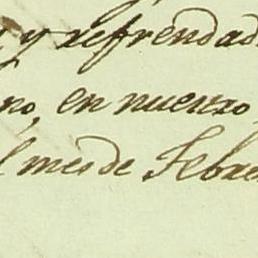 y refrendad
no, en nuestro
l mes de Febre